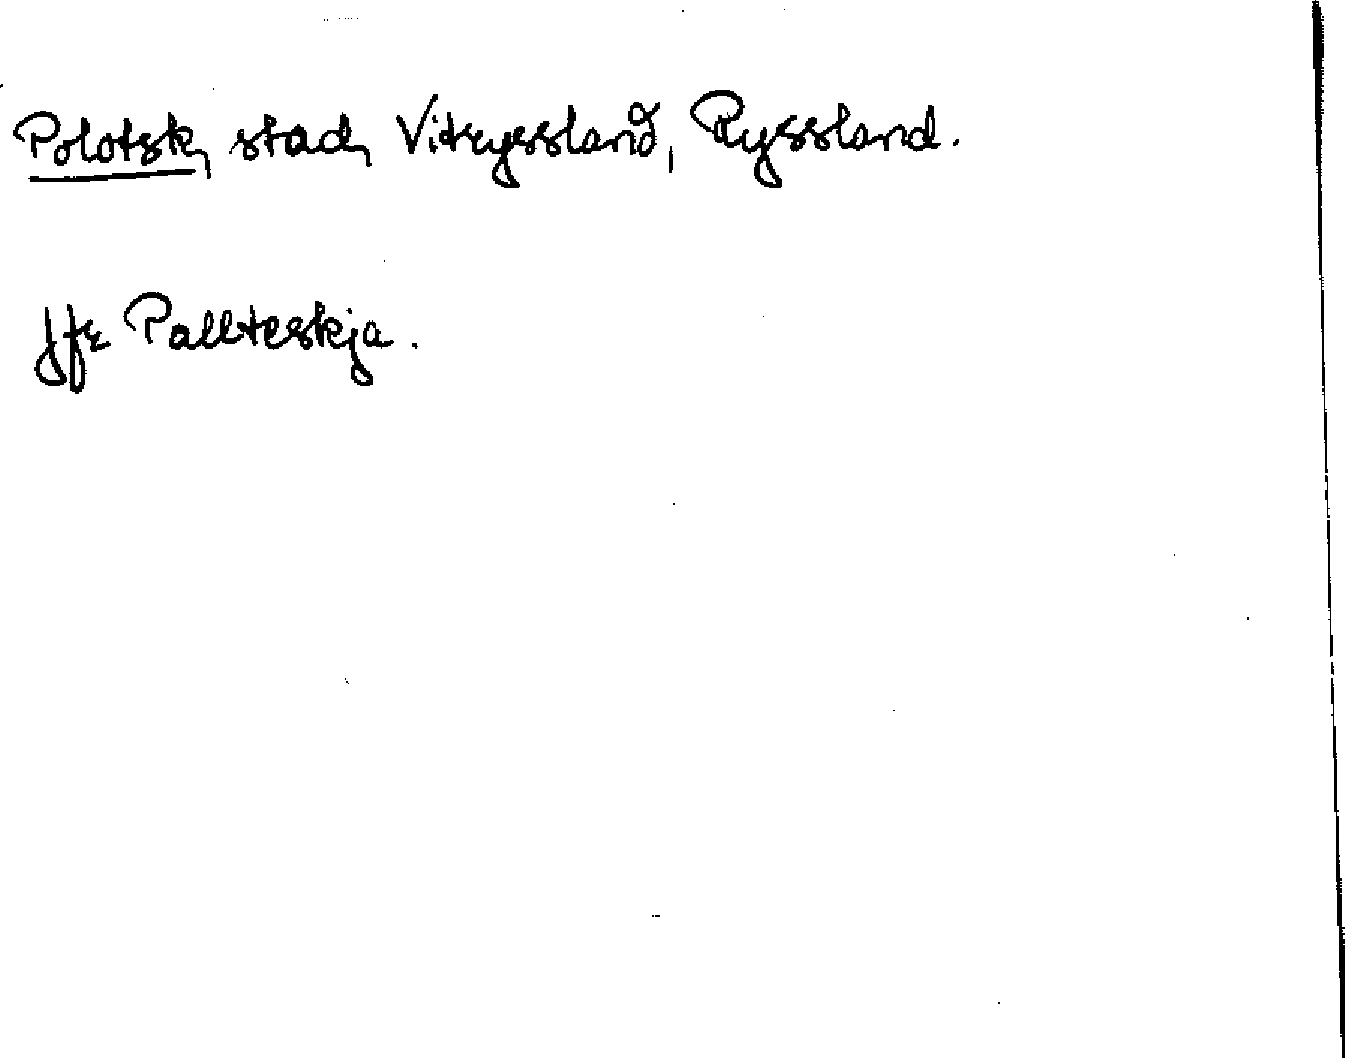 Polotsk, stad, Vitryssland, Ryssland.
Jfr Pallteskja.